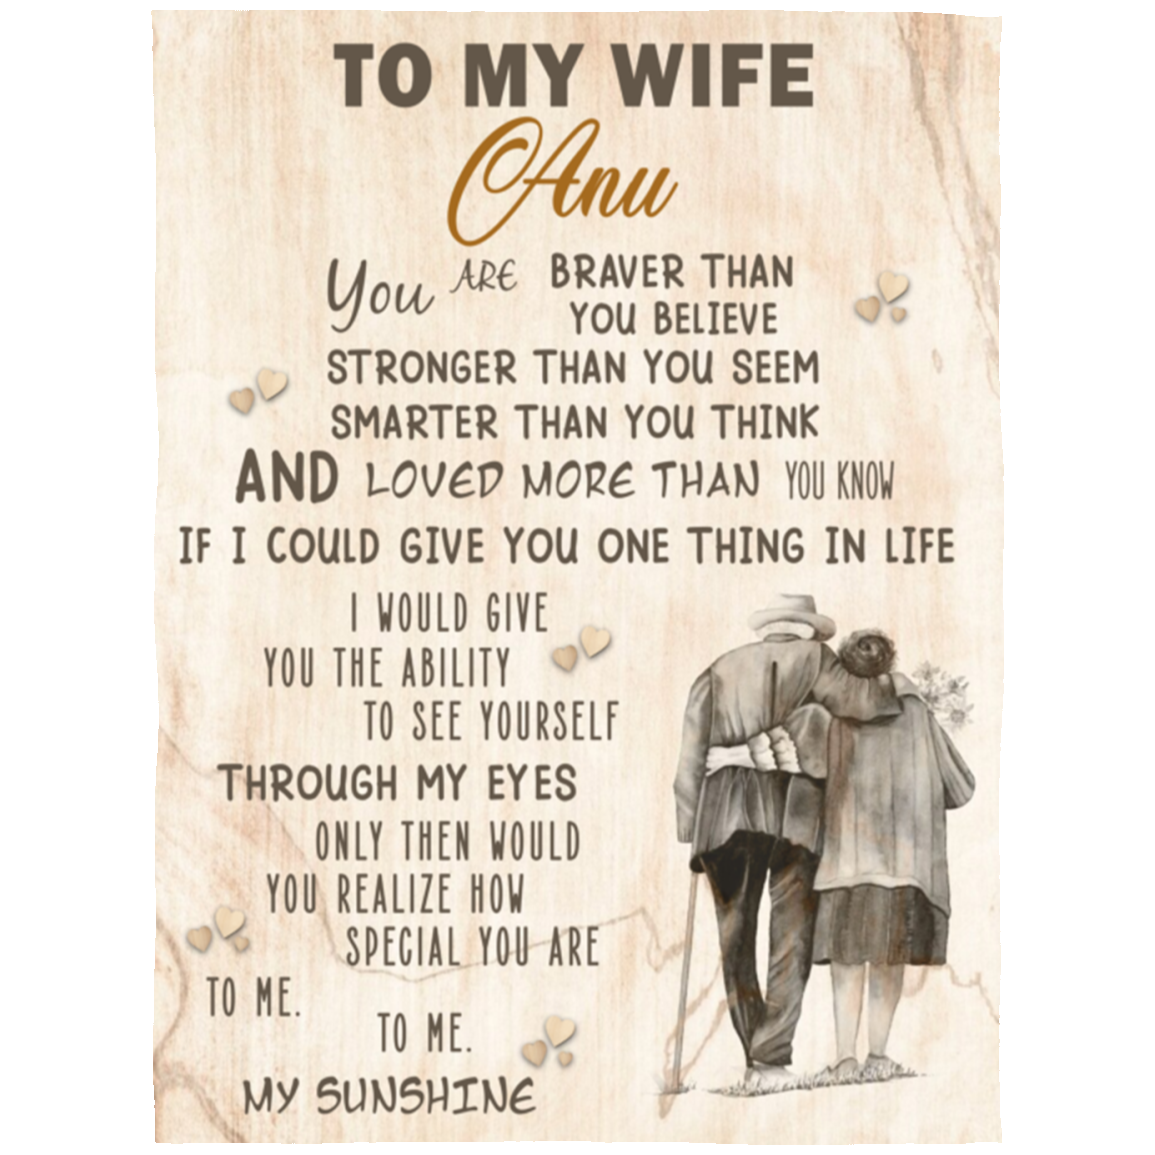 TO MY WIFE
Anu
You ARE BRAVER THAN
YOU BELIEVE
STRONGER THAN YOU SEEM
SMARTER THAN YOU THINK
AND LOVED MORE THAN YOU KNOW
IF I COULD GIVE YOU ONE THING IN LIFE
I WOULD GIVE
YOU THE ABILITY
TO SEE YOURSELF
THROUGH MY EYES
ONLY THEN WOULD
YOU REALIZE HOW
SPECIAL YOU ARE
TO ME.
TO ME.
MY SUNSHINE